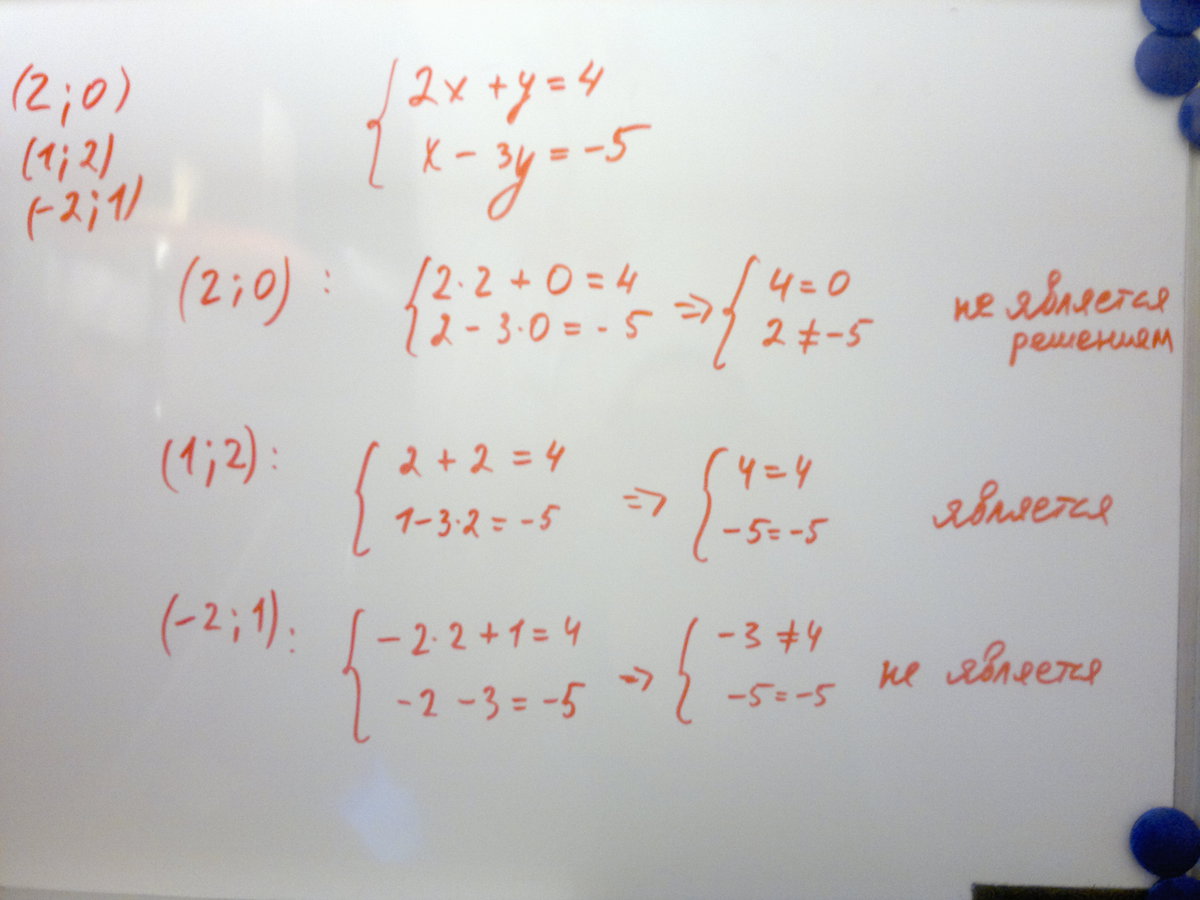 (2;0)
(1;2)
(-2;1)
{ 2x + y = 4
x - 3y = -5
(2;0) : { 2·2 + 0 = 4
2 - 3·0 = -5
=> { 4 = 0
2 ≠ -5
не является
решением
(1;2) : { 2 + 2 = 4
1-3·2 = -5
=> { 4 = 4
-5 = -5
является
(-2;1) : { -2·2 + 1 = 4
-2 -3 = -5
=> { -3 ≠ 4
-5 = -5
не является